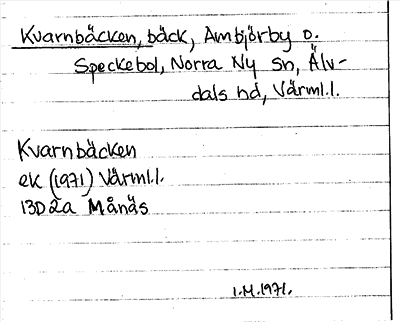 Kvarnbäcken, bäck, Ambjörby o.
Speckebol, Norra Ny sn, Älv-
dals hd, Värml.l.
Kvarnbäcken
ek (1971) Värml.l.
13D2a Månäs
I.M.1971.